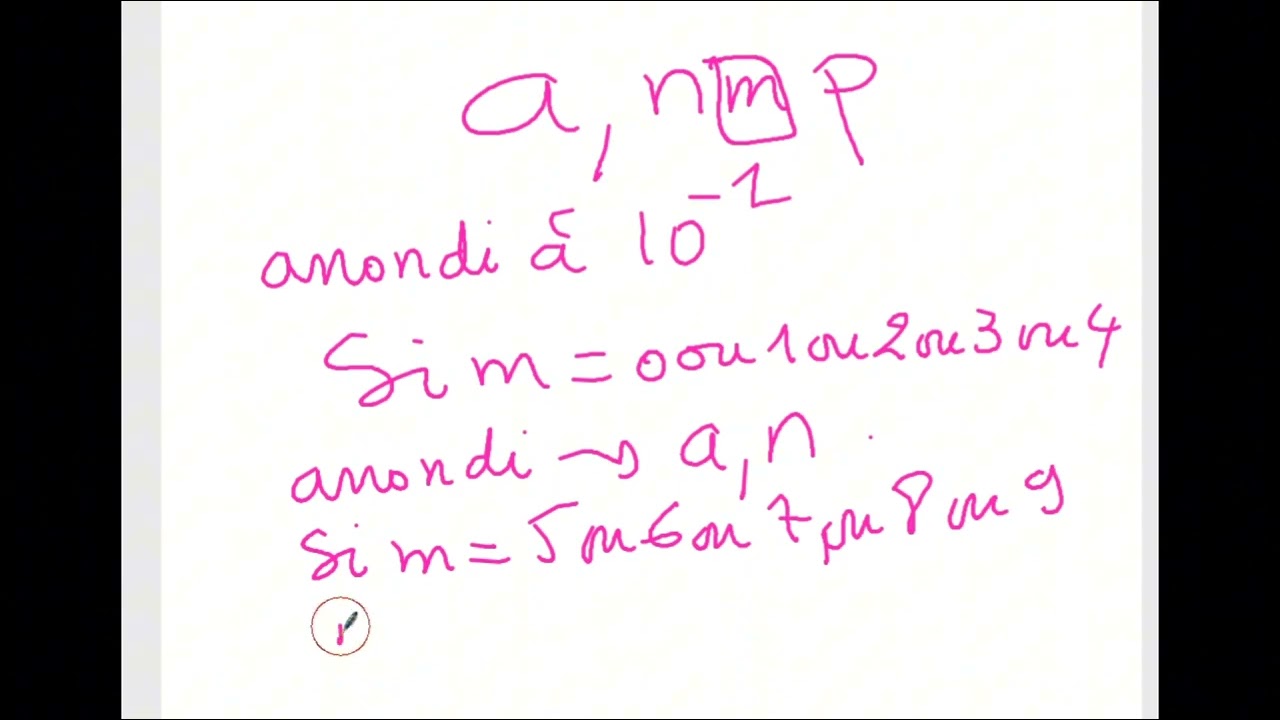 a, n m p
arrondi à 10⁻¹
Si m = 0 ou 1 ou 2 ou 3 ou 4
arrondi → a, n
Si m = 5 ou 6 ou 7 ou 8 ou 9